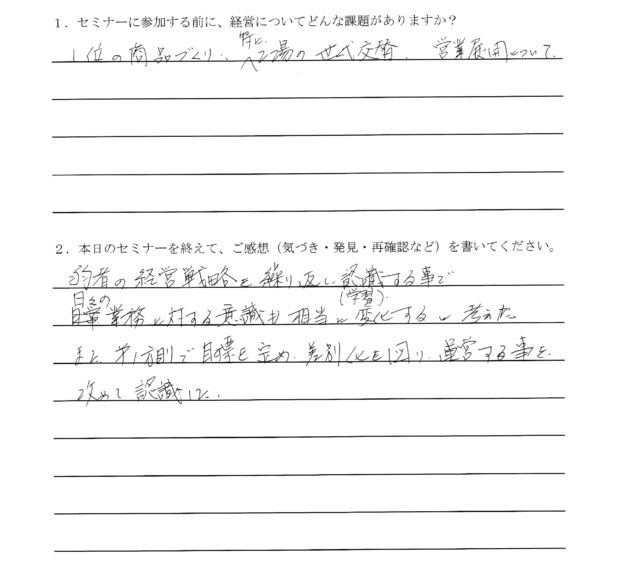 1. セミナーに参加する前に、経営についてどんな課題がありますか？
1位の商品づくり、特に工場の世代交替、営業展開について
2. 本日のセミナーを終えて、ご感想（気づき・発見・再確認など）を書いてください。
弱者の経営戦略を繰り返し認識(学習)する事で
日々の業務に対する意識も相当に変化すると考えた
また第1方則で目標を定め、差別化を図り、運営する事を
改めて認識した。